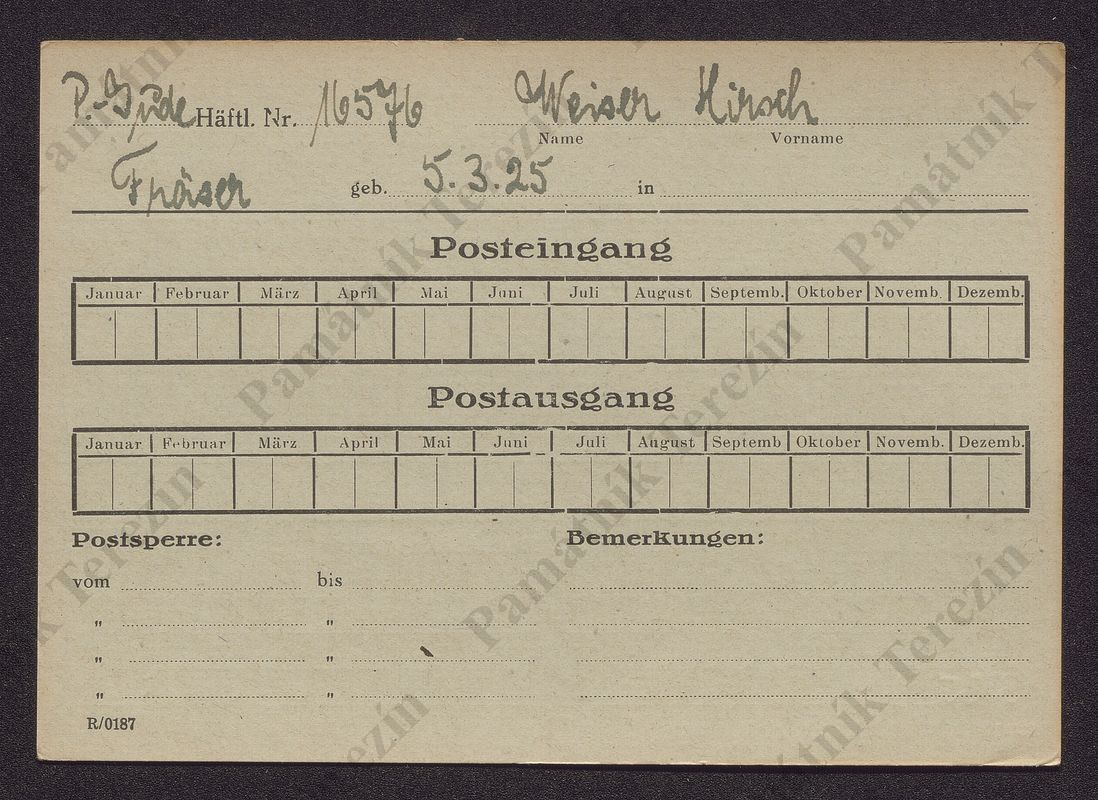 P.-Jude Häftl. Nr. 16576 Weiser Hirsch
Name Vorname
Fräser geb. 5.3.25 in
Posteingang
Januar Februar März April Mai Juni Juli August Septemb. Oktober Novemb. Dezemb.
Postausgang
Januar Februar März April Mai Juni Juli August Septemb Oktober Novemb. Dezemb.
Postsperre: Bemerkungen:
vom bis
" "
" "
" "
R/0187
Památník Terezín